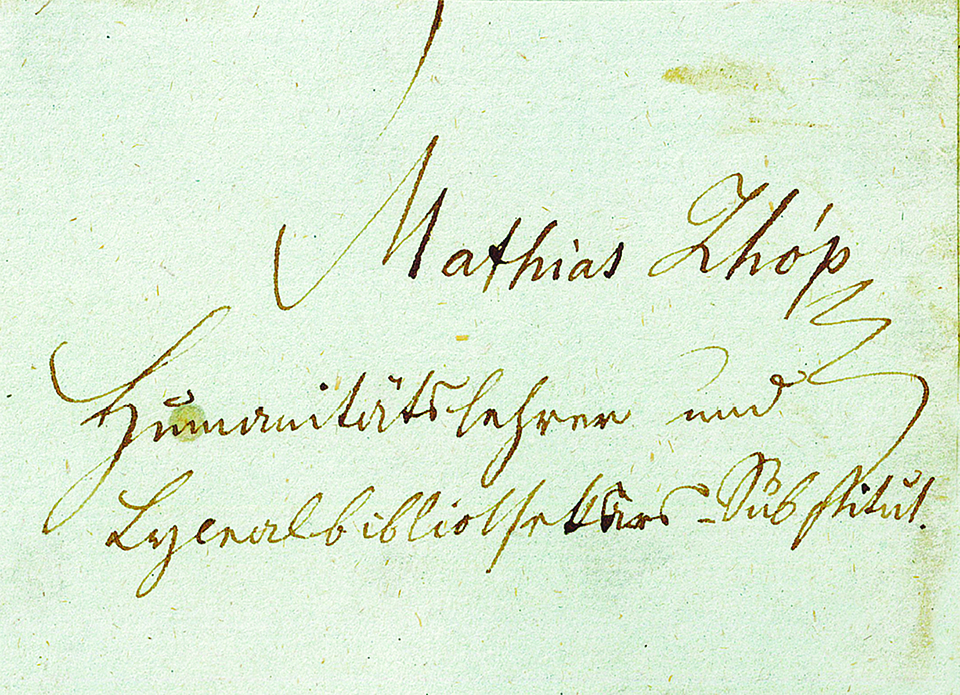 Mathias Zhóp
Humanitätslehrer und
Lycealbibliothekars-Substitut.